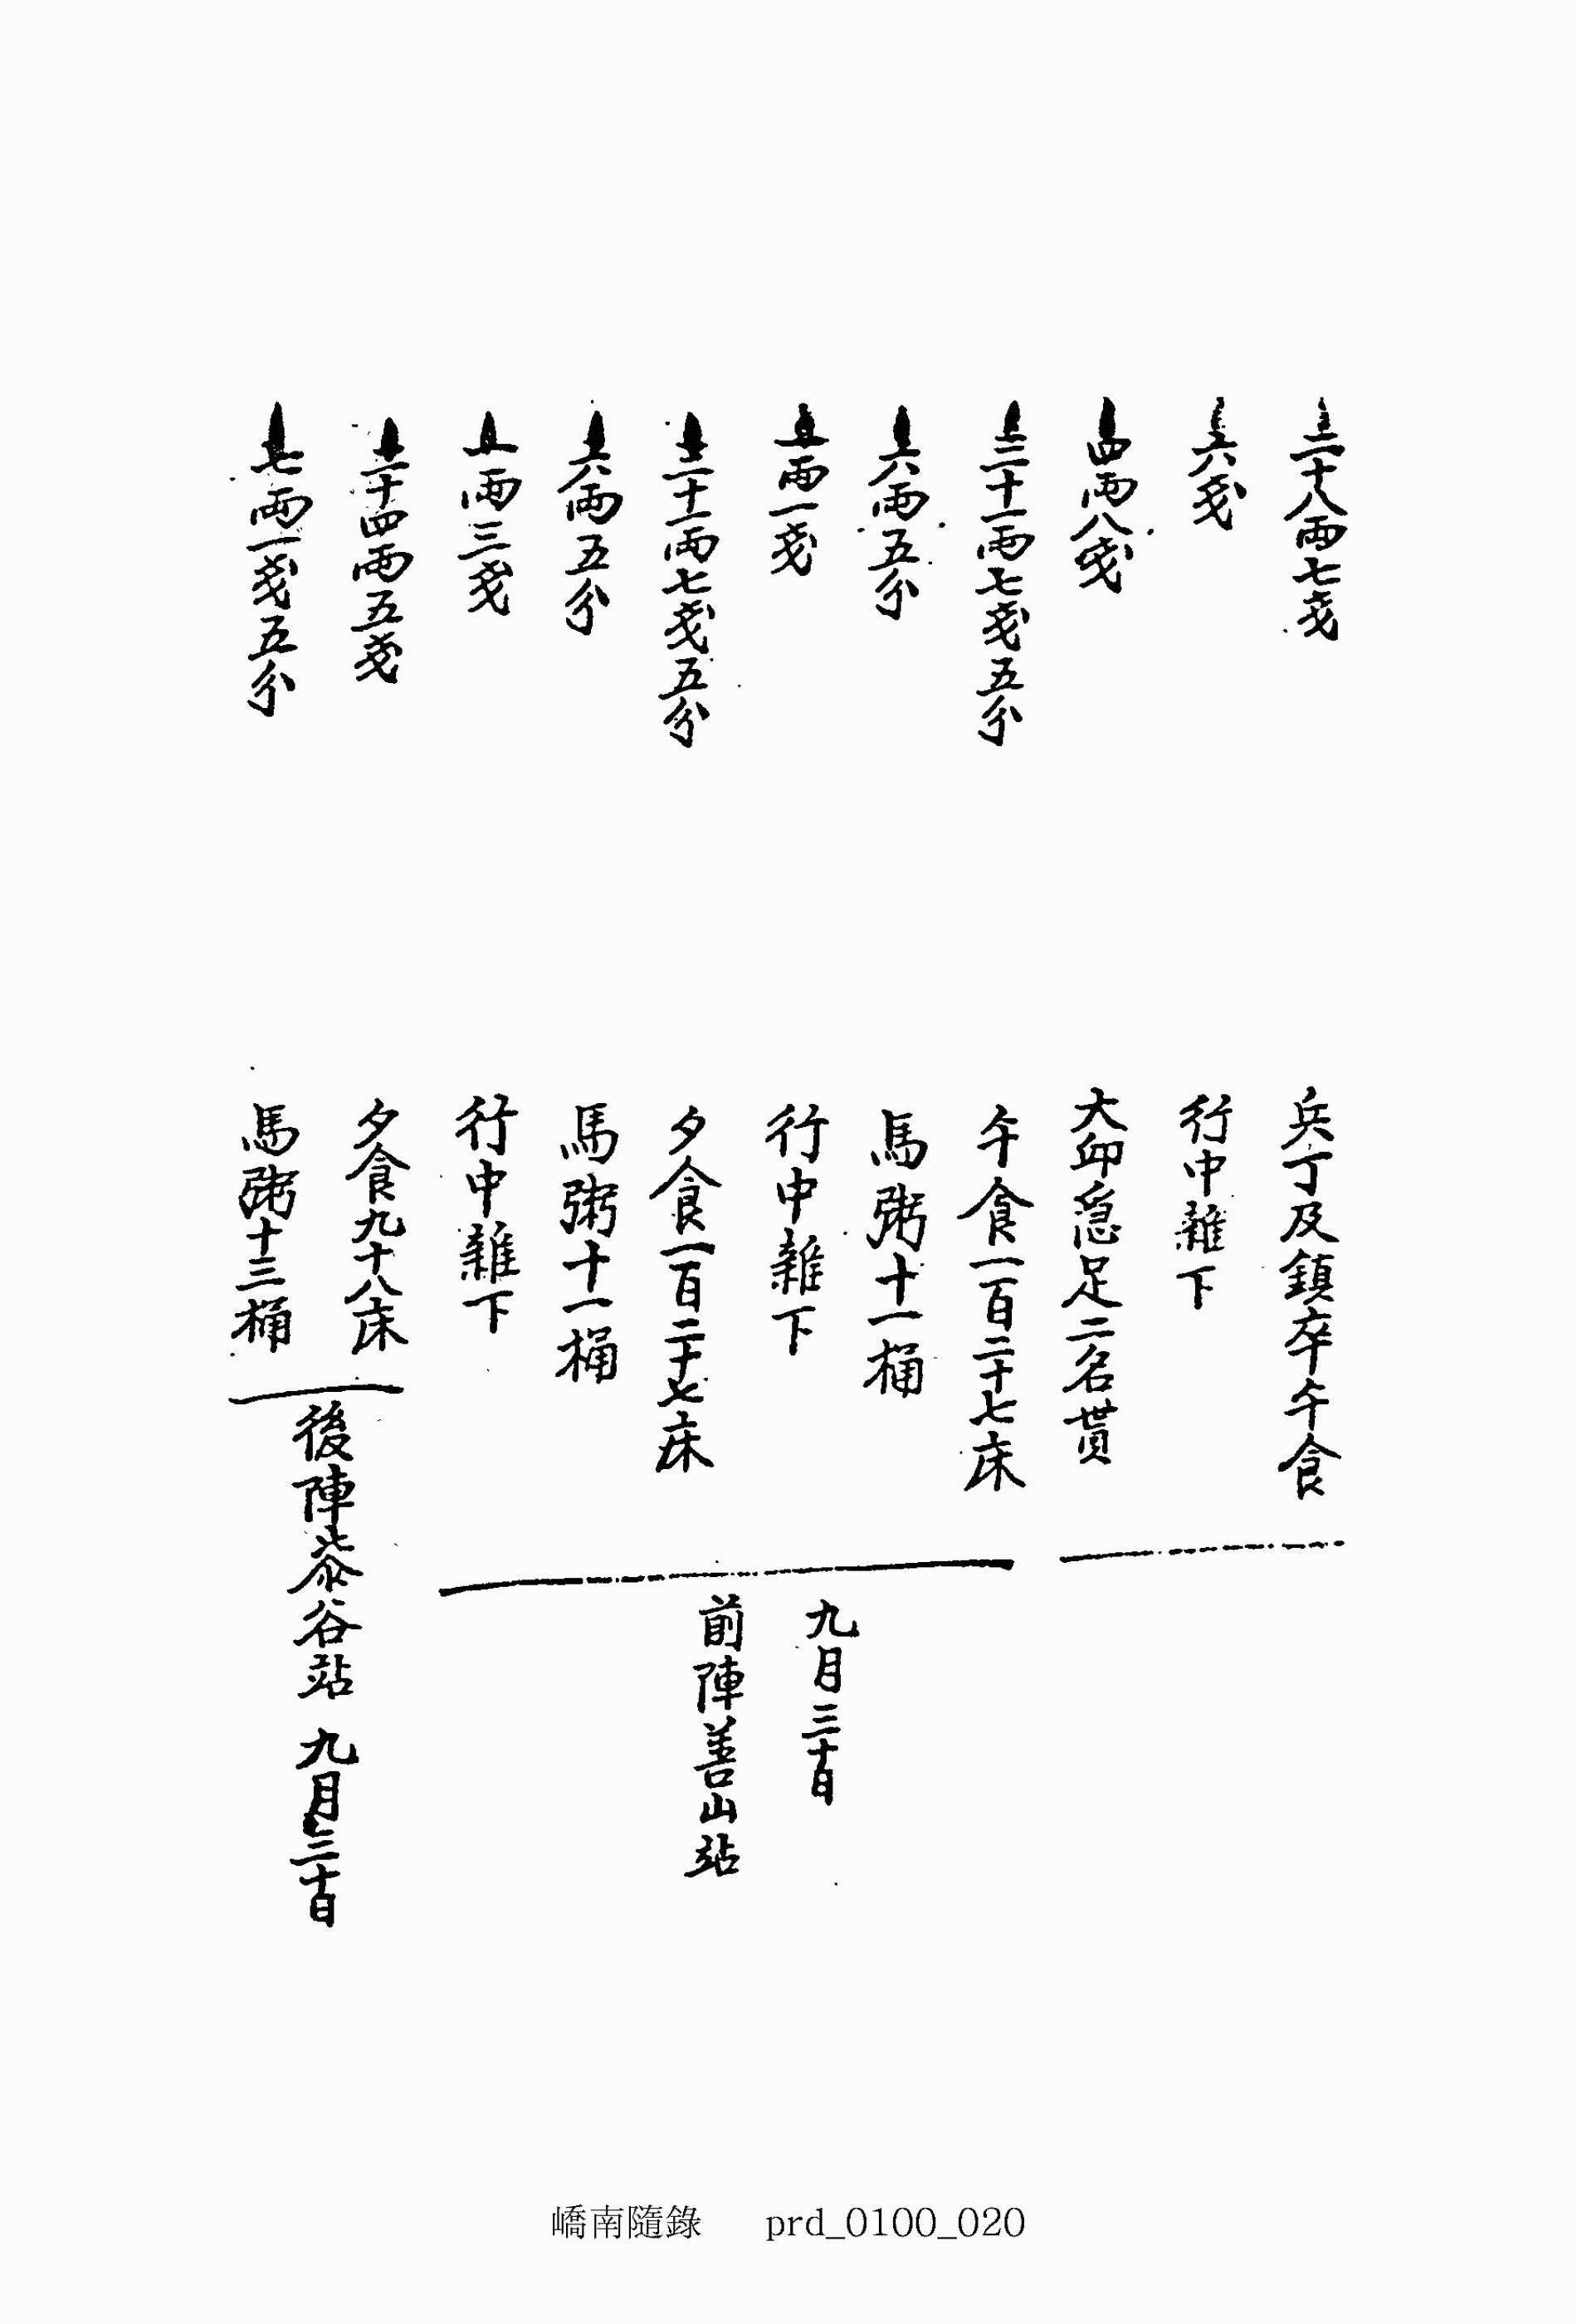 二十八兩七戔 兵丁及鎮卒午食
六戔 行中雜下
四兩八戔 大卭急足二名貰
三十一兩七戔五分 午食一百二十七床
六兩五分 馬粥十一桶
兩一戔 行中雜下
三十一兩七戔五分 夕食一百二十七床
六兩五分 馬粥十一桶
兩三戔 行中雜下
九月三十日
前陣善山站
二十四兩五戔 夕食九十八床
七兩一戔五分 馬粥十三桶
後陣柒谷站 九月三十日
嶠南隨錄 prd_0100_020